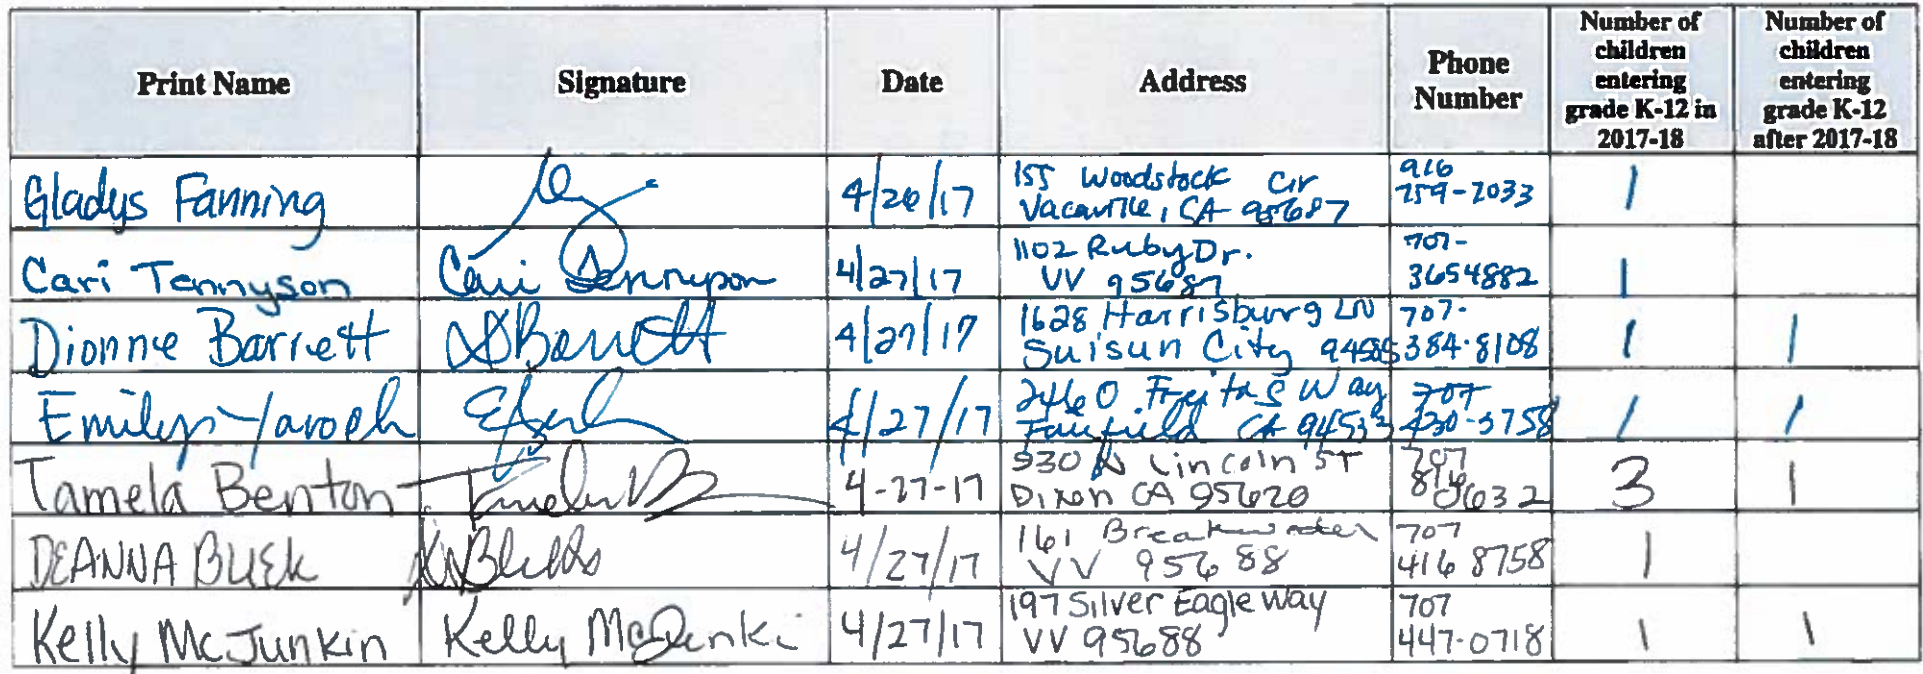 Print Name Signature Date Address Phone Number Number of children entering grade K-12 in 2017-18 Number of children entering grade K-12 after 2017-18
Gladys Fanning 4/26/17 155 Woodstock Cir 916
Vacaville, CA 95687 759-7033 1
Cari Tennyson Cari Tennyson 4/27/17 1102 Ruby Dr. 707-
VV 95687 3654882 1
Dionne Barrett DBarrett 4/27/17 1628 Harrisburg LN 707-
Suisun City 94585 384-8108 1 1
Emily Yaroch 4/27/17 2460 Freitas Way 707
Fairfield CA 94533 430-3758 1 1
Tamela Benton 4-27-17 930 N Lincoln ST 707
Dixon CA 95620 0632 3 1
DEANNA BUEK 4/27/17 161 Breakwater 707
VV 95688 416 8758 1
Kelly McJunkin Kelly McJunki 4/27/17 197 Silver Eagle Way 707
VV 95688 447-0718 1 1